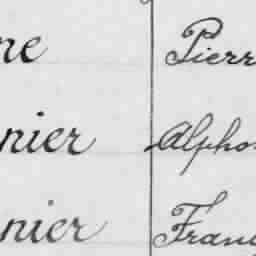 ne Pierr
nier Alpho
nier Franç